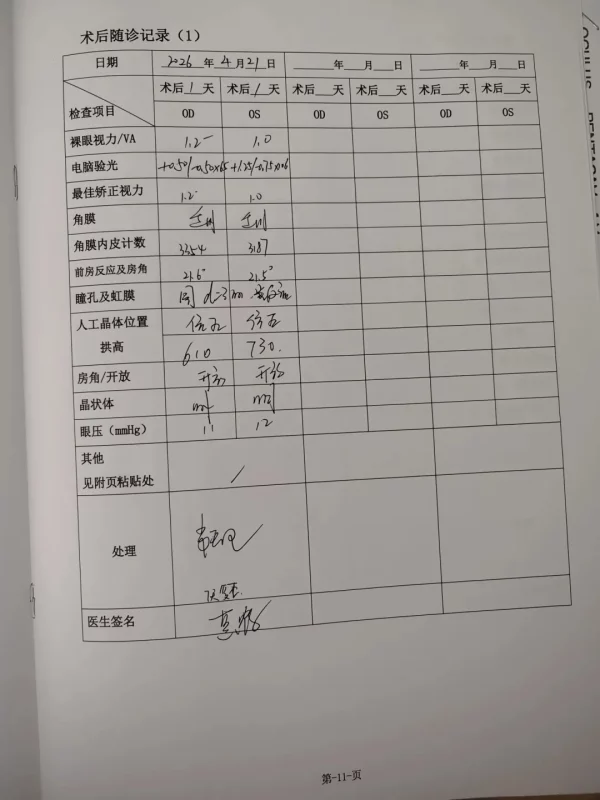 术后随诊记录（1）
日期 2026 年 4 月 21 日 年 月 日 年 月 日
检查项目 术后 1 天 术后 1 天 术后 天 术后 天 术后 天 术后 天
OD OS OD OS OD OS
裸眼视力/VA 1.2⁻ 1.0
电脑验光 +0.50/-0.50×65 +1.25/-0.75×
最佳矫正视力 1.2⁻ 1.0
角膜 透明 透明
角膜内皮计数 3354 3187
前房反应及房角 21.6° 21.5°
瞳孔及虹膜 圆 d=3mm
人工晶体位置
拱高 610 730.
房角/开放 开放 开放
晶状体
眼压（mmHg） 11 12
其他
见附页粘贴处 /
处理
医生签名
第-11-页
OCULUS PENTACAM